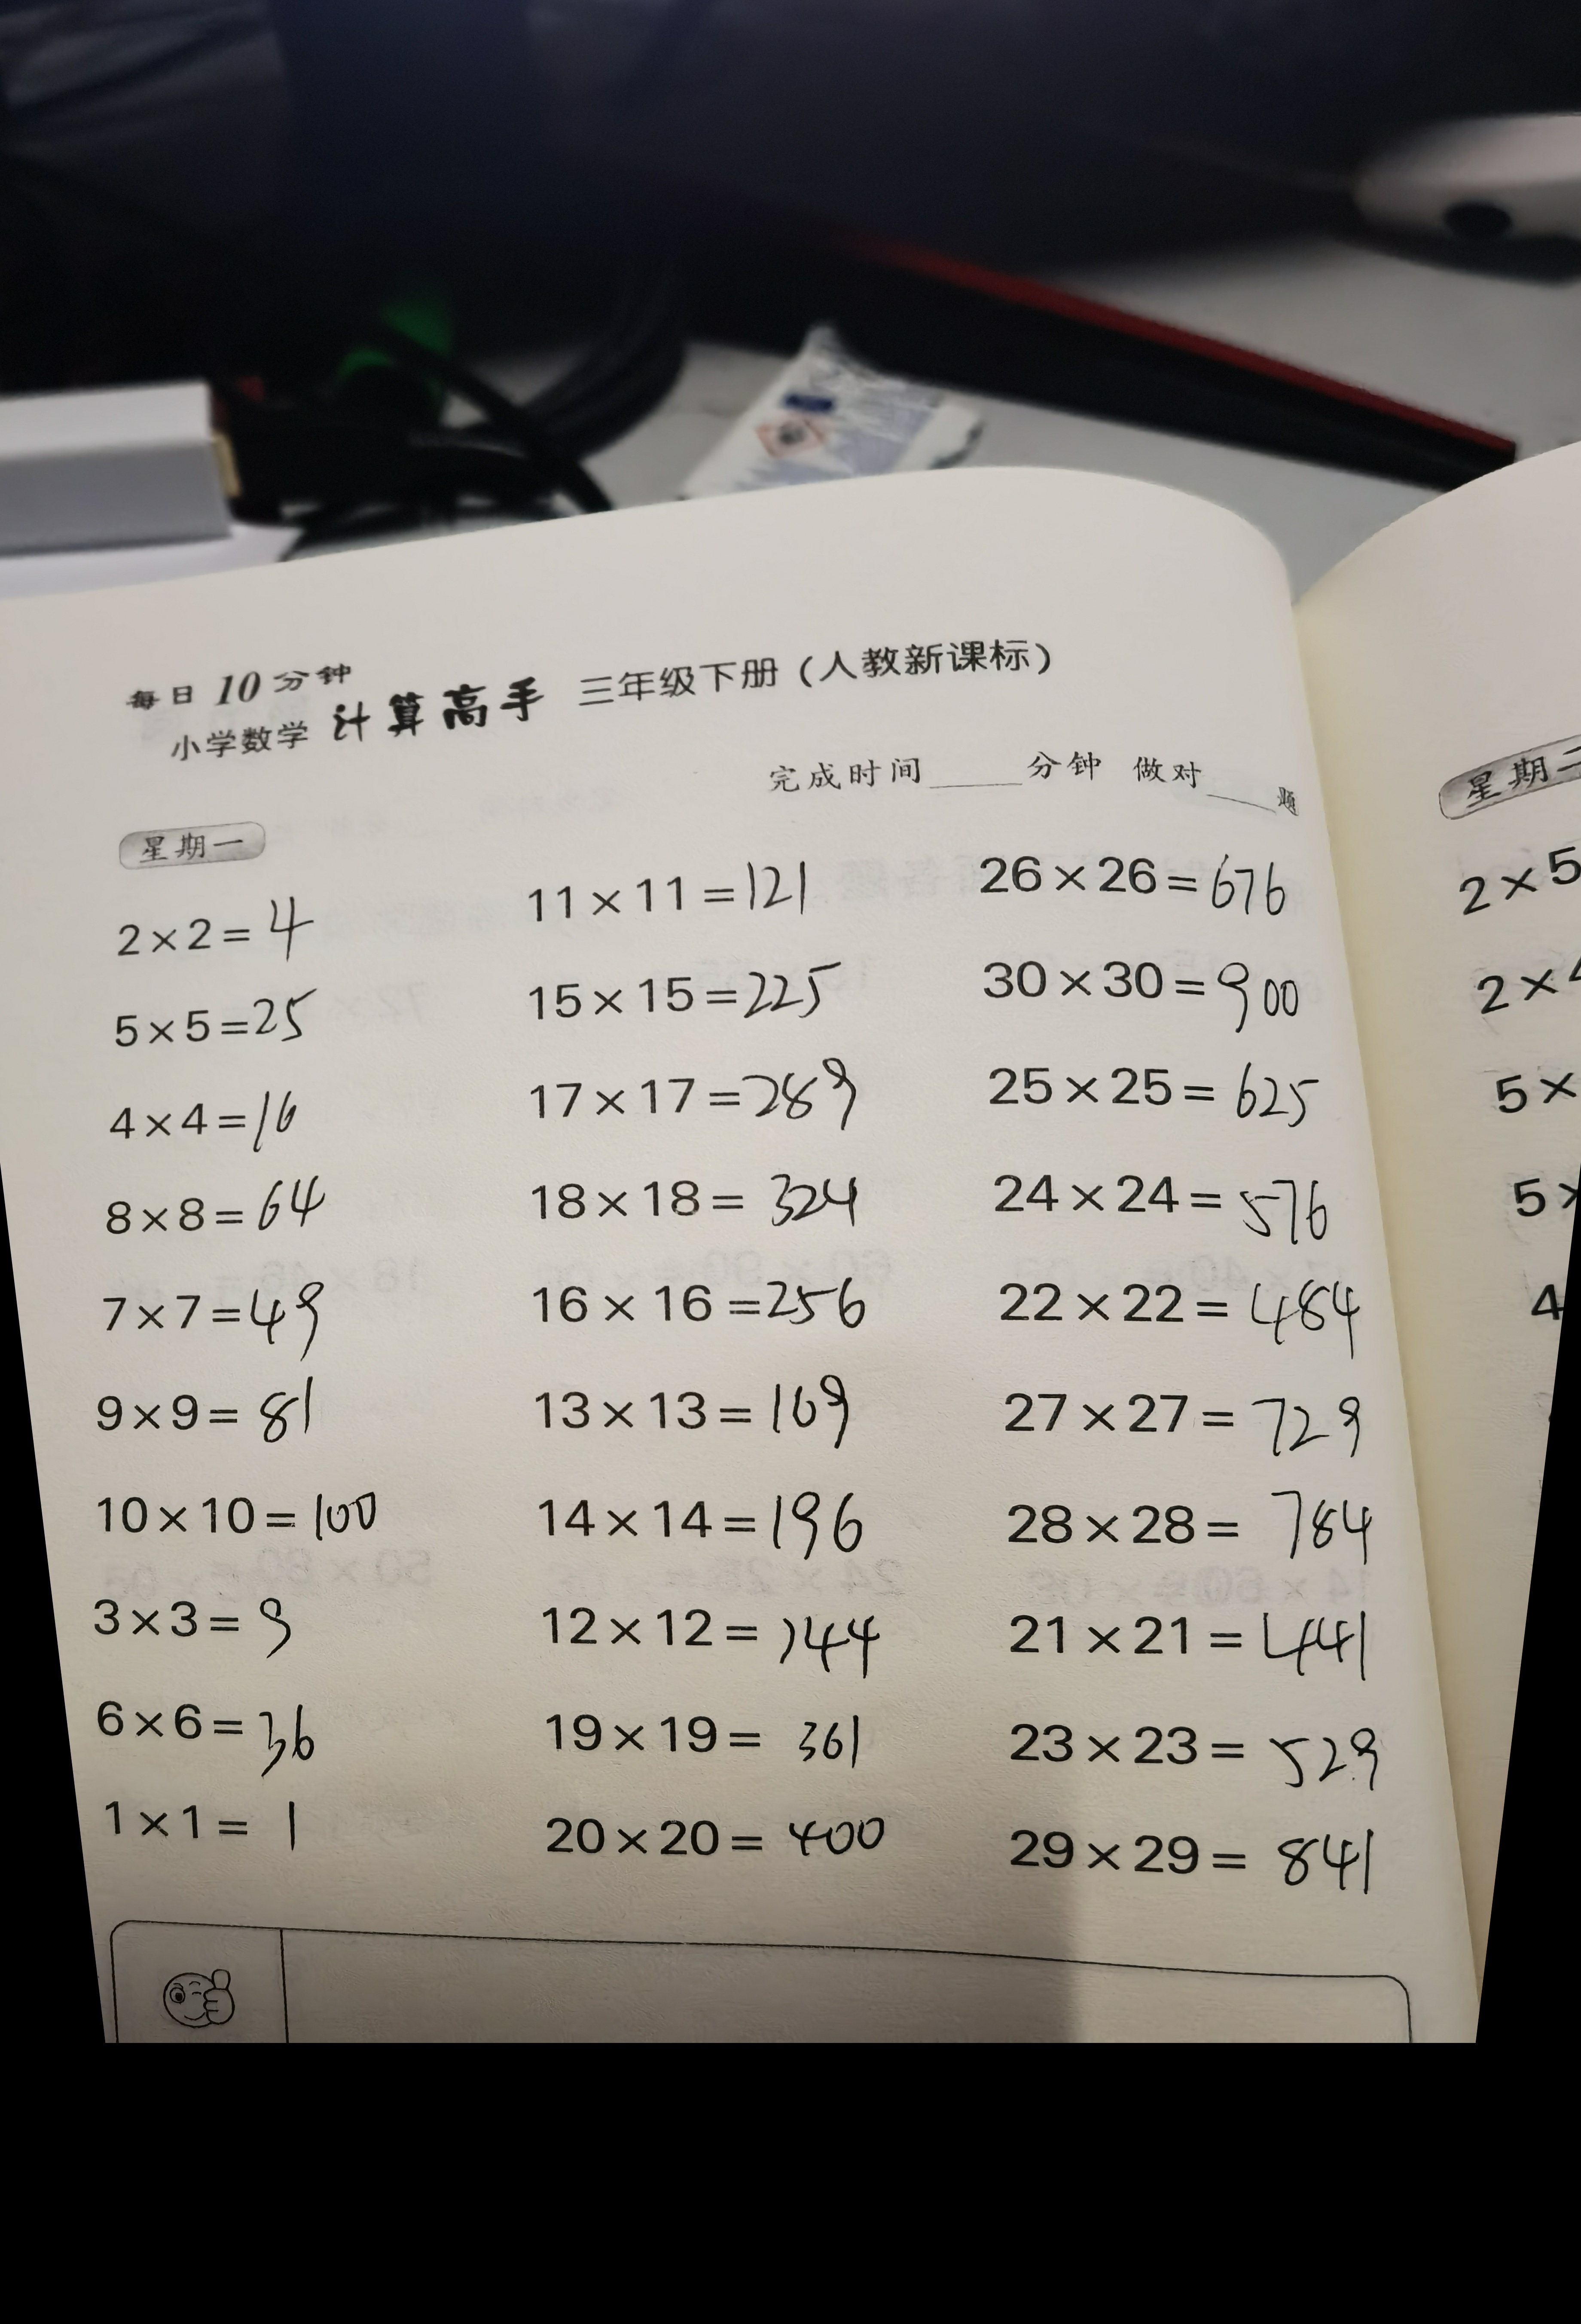 每日10分钟
小学数学 计算高手 三年级下册(人教新课标)
完成时间_____分钟 做对____题
星期一
2×2=4
5×5=25
4×4=16
8×8=64
7×7=49
9×9=81
10×10=100
3×3=9
6×6=36
1×1=1
11×11=121
15×15=225
17×17=289
18×18=324
16×16=256
13×13=169
14×14=196
12×12=144
19×19=361
20×20=400
26×26=676
30×30=900
25×25=625
24×24=576
22×22=484
27×27=729
28×28=784
21×21=441
23×23=529
29×29=841
星期二
2×5
2×4
5×
5×
4